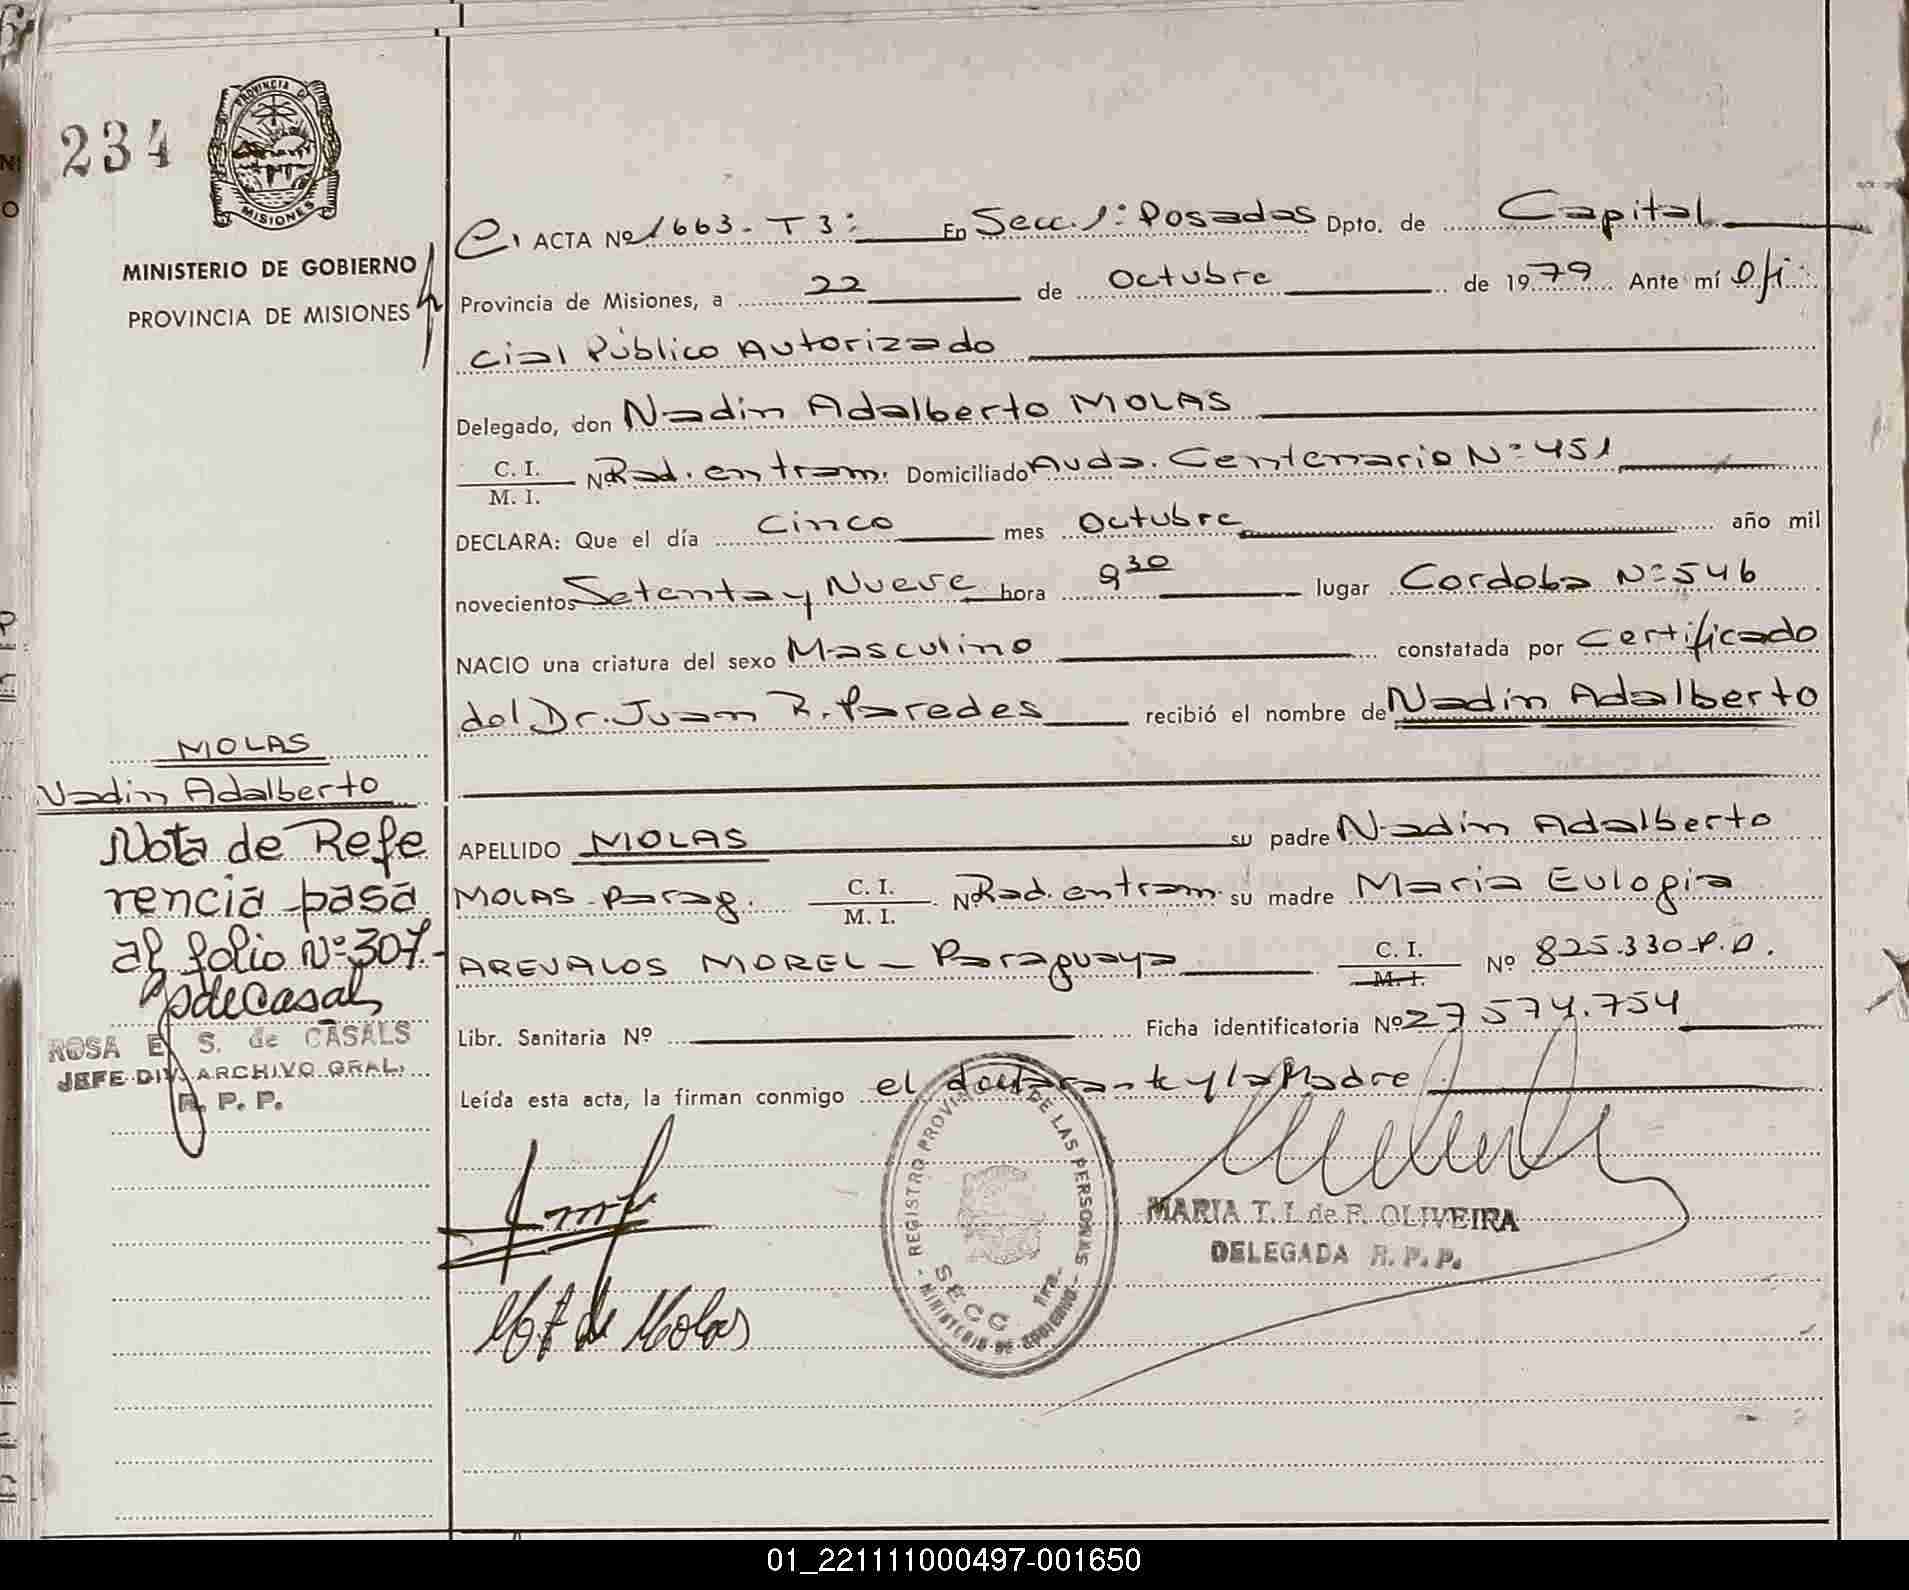 234
PROVINCIA DE
MISIONES
MINISTERIO DE GOBIERNO
PROVINCIA DE MISIONES
ACTA Nº 1663 - T 3: En Secc. 1: Posadas Dpto. de Capital
Provincia de Misiones, a 22 de Octubre de 1979. Ante mí Ofi
cial Público Autorizado
Delegado, don Nadin Adalberto MOLAS
C. I.
M. I. Nº Rad. en tram. Domiciliado Avda. Centenario Nº 451
DECLARA: Que el día Cinco mes Octubre año mil
novecientos Setenta y Nueve hora 9 30 lugar Cordoba Nº 546
NACIO una criatura del sexo Masculino constatada por Certificado
del Dr. Juan R. Paredes recibió el nombre de Nadin Adalberto
MOLAS
Nadin Adalberto
Nota de Refe
rencia pasa
al folio Nº 307.-
ROSA E. S. de CASALS
JEFE DIV. ARCHIVO GRAL.
R. P. P.
APELLIDO MOLAS su padre Nadin Adalberto
MOLAS - Parag. C. I.
M. I. Nº Rad. en tram. su madre Maria Eulogia
AREVALOS MOREL - Paraguaya C. I.
M. I. Nº 825.330 - P. D.
Libr. Sanitaria Nº Ficha identificatoria Nº 27 574.754
Leída esta acta, la firman conmigo el declarante y la Madre
REGISTRO PROVINCIAL DE LAS PERSONAS
SECC 1ra.
- MINISTERIO DE GOBIERNO -
MARIA T. I. de F. OLIVEIRA
DELEGADA R. P. P.
de Molas
01_221111000497-001650